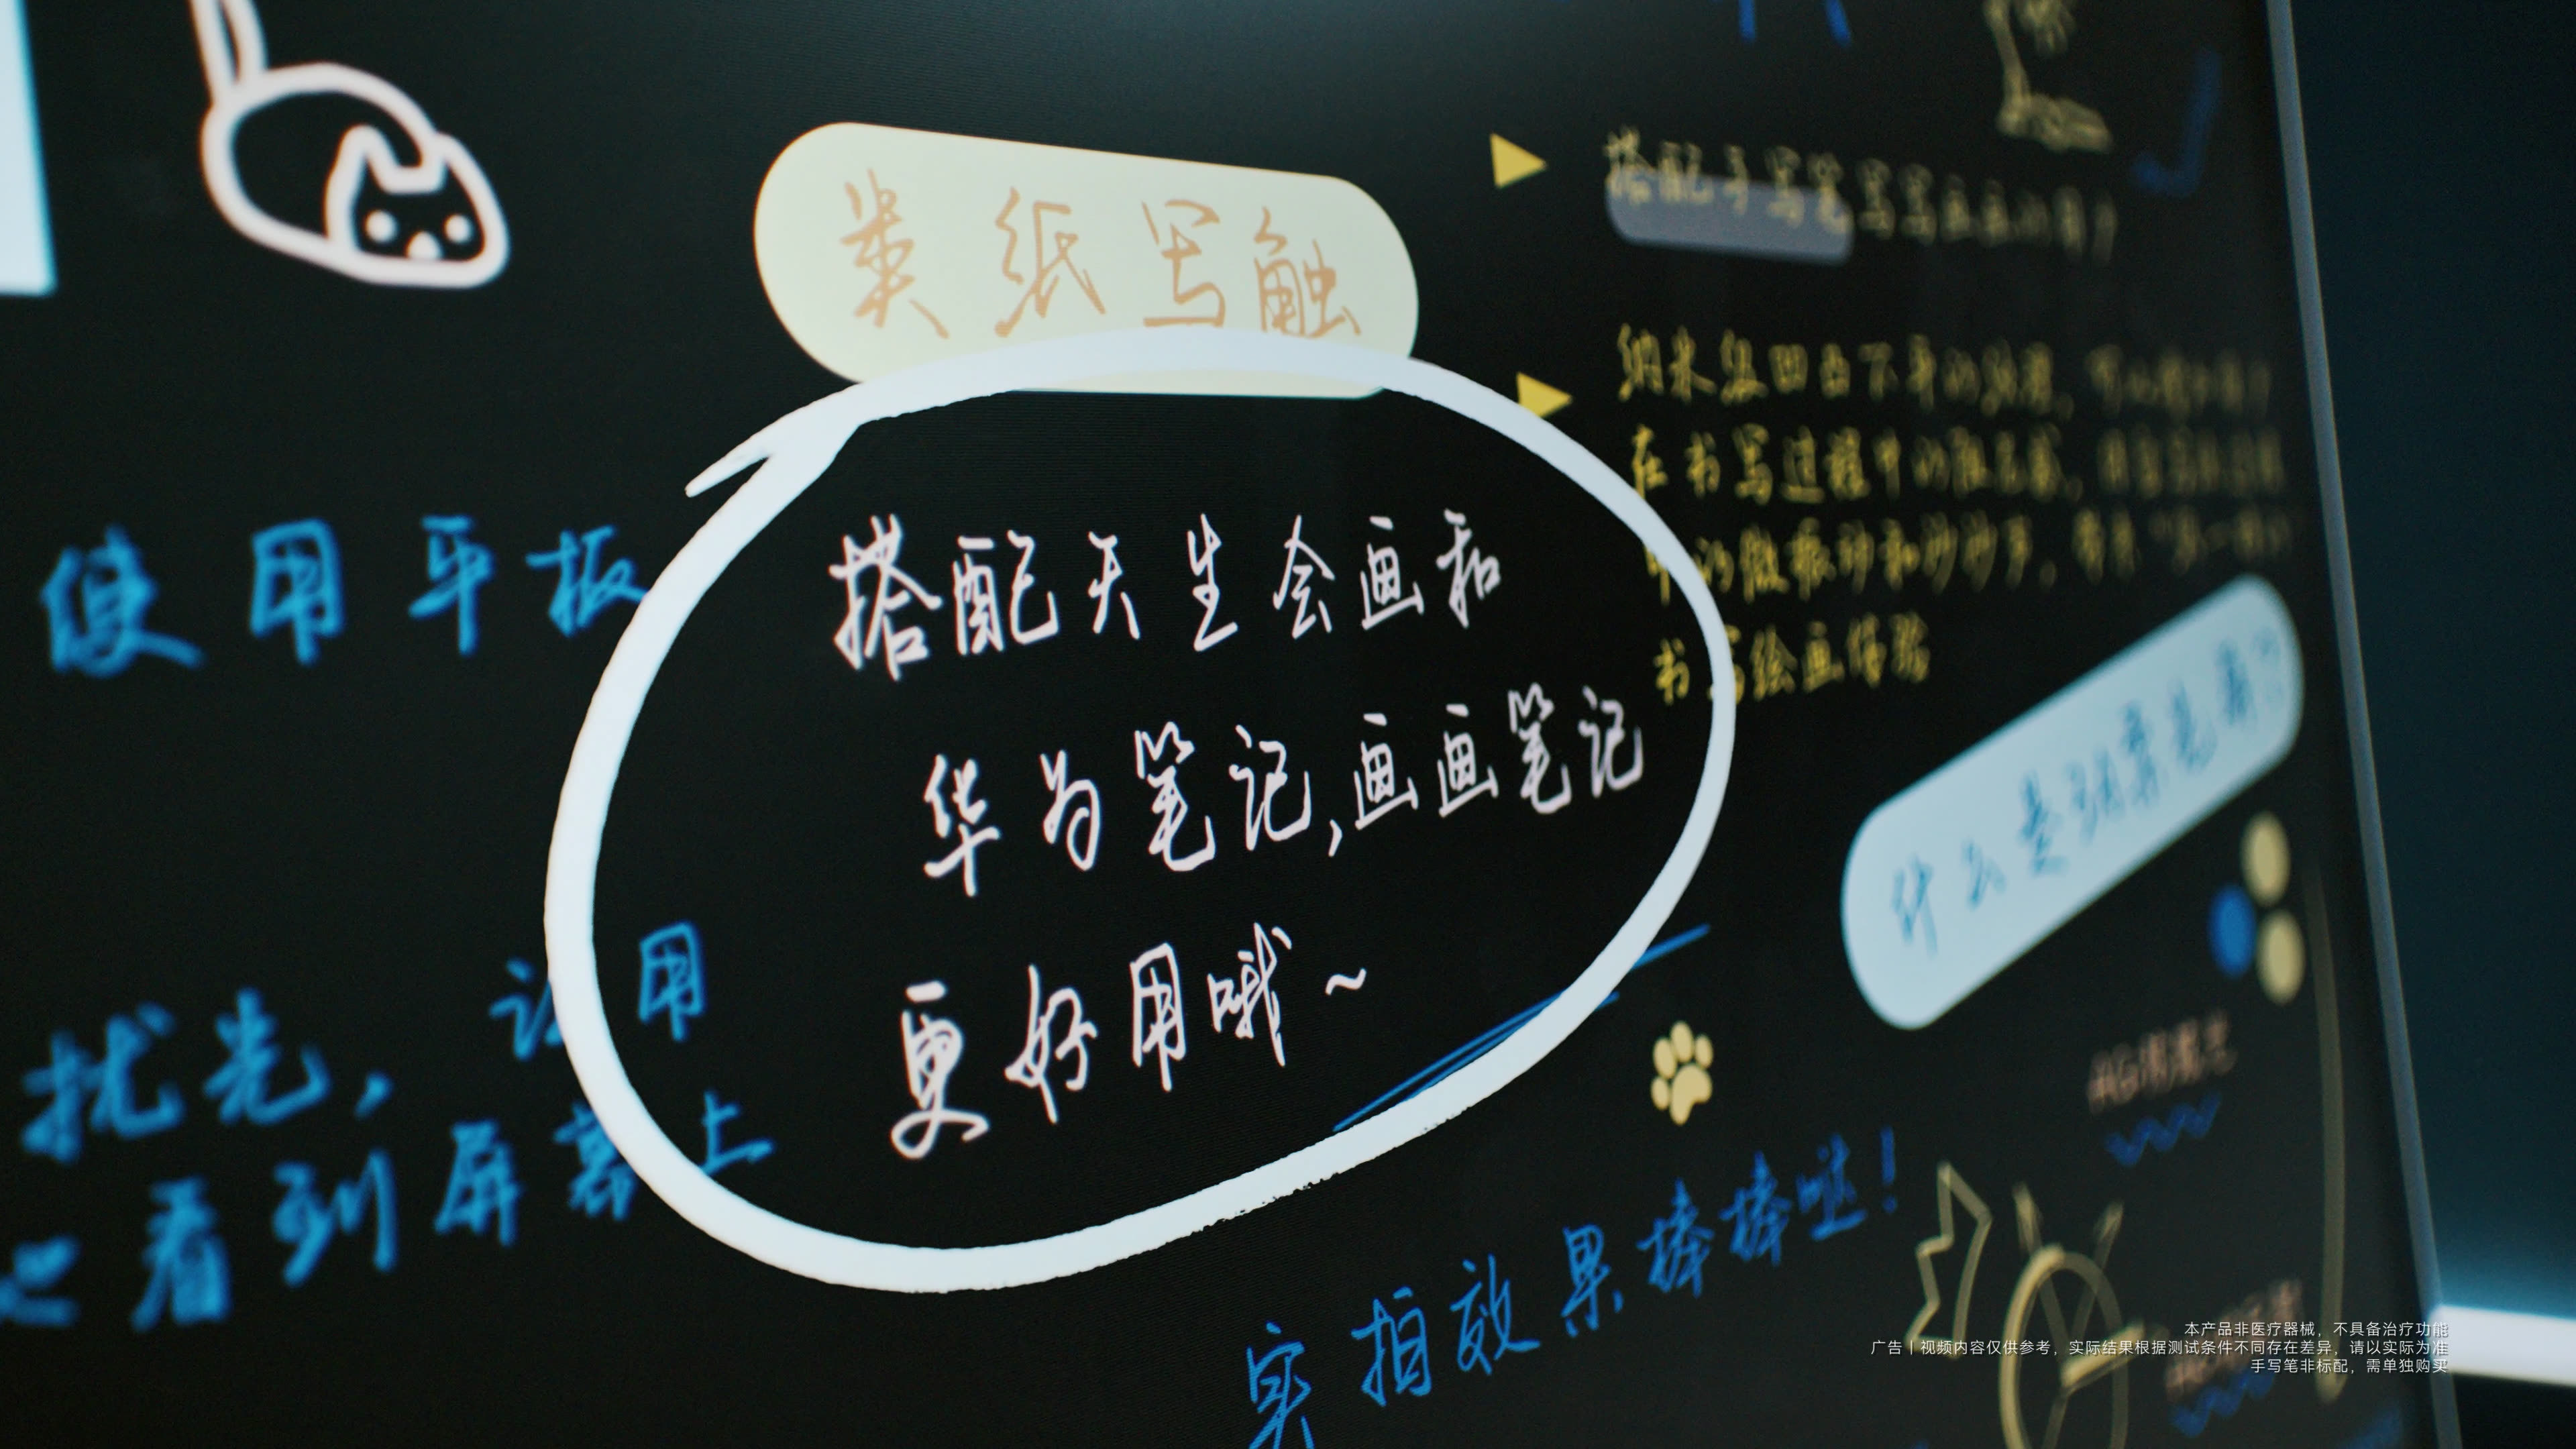 类纸写触
搭配手写笔写写画画
纳米级凹凸不平的纹理,
在书写过程中的阻尼感,
的微振动和沙沙声,
书写绘画体验
使用平板
搭配天生会画和
华为笔记,画画笔记
更好用哦~
什么是
扰光, 让用
看到屏幕上
实拍效果棒棒哒!
本产品非医疗器械，不具备治疗功能
广告丨视频内容仅供参考，实际结果根据测试条件不同存在差异，请以实际为准
手写笔非标配，需单独购买